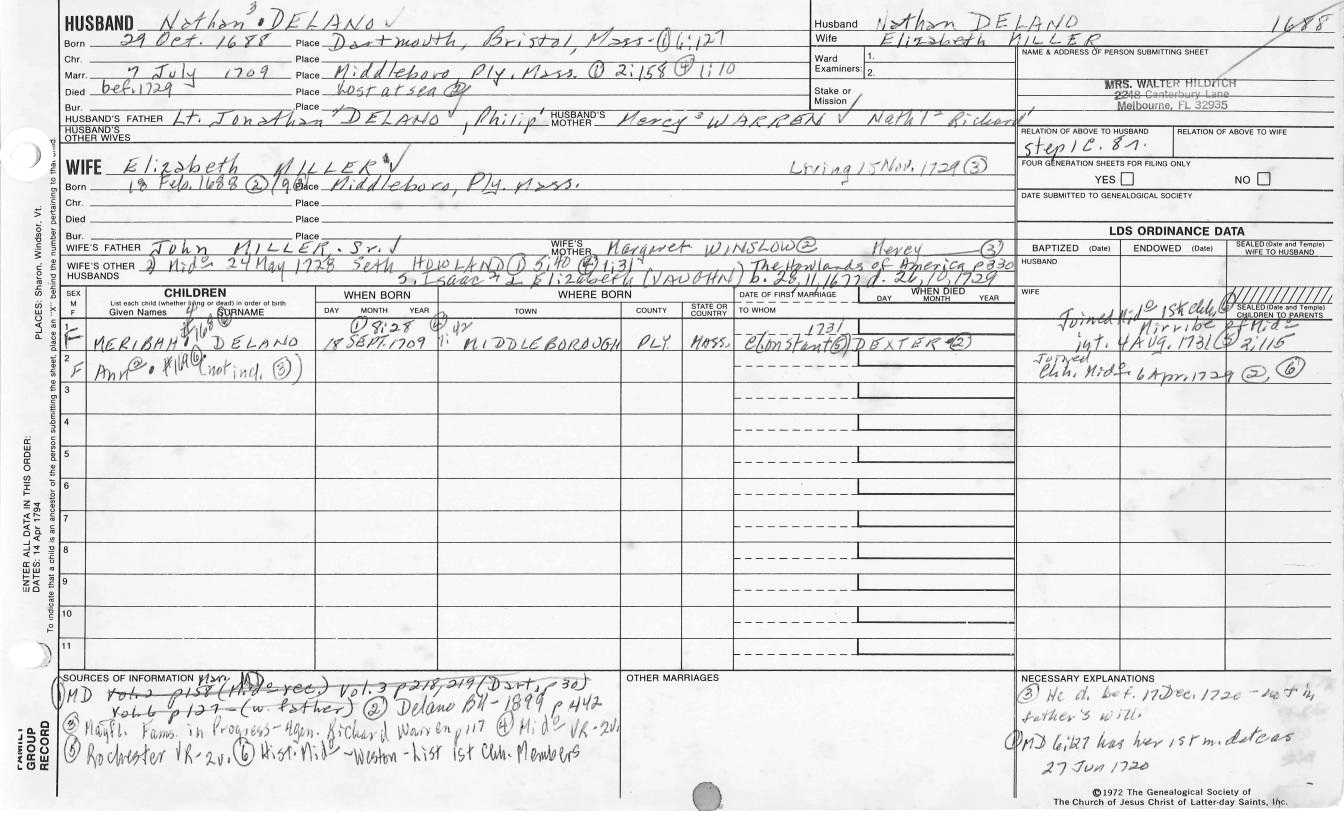 HUSBAND Nathan³ DELANO
Born 29 Oct. 1688 Place Dartmouth, Bristol, Mass. ① 6:127
Chr. Place
Marr. 7 July 1709 Place Middleboro, Ply. Mass. ① 2:158 ④ 1:10
Died bef. 1729 Place Lost at sea ②
Bur. Place
HUSBAND'S FATHER Lt. Jonathan² DELANO, Philip¹ HUSBAND'S MOTHER Mercy³ WARREN Nath'l² Richard¹
HUSBAND'S OTHER WIVES
Husband Nathan DELANO 1688
Wife Elizabeth MILLER
Ward Examiners: 1. 2.
Stake or Mission
NAME & ADDRESS OF PERSON SUBMITTING SHEET
MRS. WALTER HILDITCH
2248 Canterbury Lane
Melbourne, FL 32935
RELATION OF ABOVE TO HUSBAND RELATION OF ABOVE TO WIFE
step 1C. 8r.
FOUR GENERATION SHEETS FOR FILING ONLY
YES NO
DATE SUBMITTED TO GENEALOGICAL SOCIETY
WIFE Elizabeth MILLER Living 15 Nov. 1729 ③
Born 18 Feb. 1688 ② Place Middleboro, Ply. Mass.
Chr. Place
Died Place
Bur. Place
WIFE'S FATHER John MILLER. Sr. WIFE'S MOTHER Margaret WINSLOW ② Mercy ③
WIFE'S OTHER HUSBANDS 2) Mido 24 May 1728 Seth HOWLAND ① 5:40 ④ 1:31 The Howlands of America p330
S. Isaac + Elizabeth (VAUGHN) b. 28, 11, 1677 d. 20, 10, 1729
LDS ORDINANCE DATA
BAPTIZED (Date) ENDOWED (Date) SEALED (Date and Temple) WIFE TO HUSBAND
HUSBAND
WIFE
SEALED (Date and Temple) CHILDREN TO PARENTS
SEX M F
CHILDREN
List each child (whether living or dead) in order of birth
Given Names SURNAME
WHEN BORN
DAY MONTH YEAR
WHERE BORN
TOWN COUNTY STATE OR COUNTRY
DATE OF FIRST MARRIAGE
TO WHOM
WHEN DIED
DAY MONTH YEAR
1 F MERIBAH DELANO #168 ① 3:28 18 SEPT. 1709 MIDDLEBOROUGH PLY. MASS. 1731 Constant ⑤ DEXTER ②
Joined Mido 1st Chh. ⑥
Mirribe of Mido
int. 4 AUG. 1731 ⑤ 2:115
2 F Ann #169 ⑥ (not incl. ③)
Joined Chh. Mido 6 Apr. 1729 ②, ⑥
3
4
5
6
7
8
9
10
11
ENTER ALL DATA IN THIS ORDER:
DATES: 14 Apr 1794
PLACES: Sharon, Windsor, Vt.
To indicate that a child is an ancestor of the person submitting the sheet, place an "X" behind the number pertaining to that
FAMILY GROUP RECORD
SOURCES OF INFORMATION
① MD Vol. 2 p158 (Mido rec.) Vol. 3 p218, 219 (Dart. p 30)
Vol. 6 p 127 - (w. father) ② Delano BH - 1899 p 442
③ Mayfl. Fams. in Progress - Richard Warren p 117 ④ Mido VR - 2v.
⑤ Rochester VR - 2v. ⑥ Hist. Mido - Weston - List 1st Chh. Members
OTHER MARRIAGES
NECESSARY EXPLANATIONS
③ He d. bef. 17 Dec. 1720 - not in
father's will.
① MD 6:127 has her 1st m. date as
27 Jun 1720
©1972 The Genealogical Society of
The Church of Jesus Christ of Latter-day Saints, Inc.